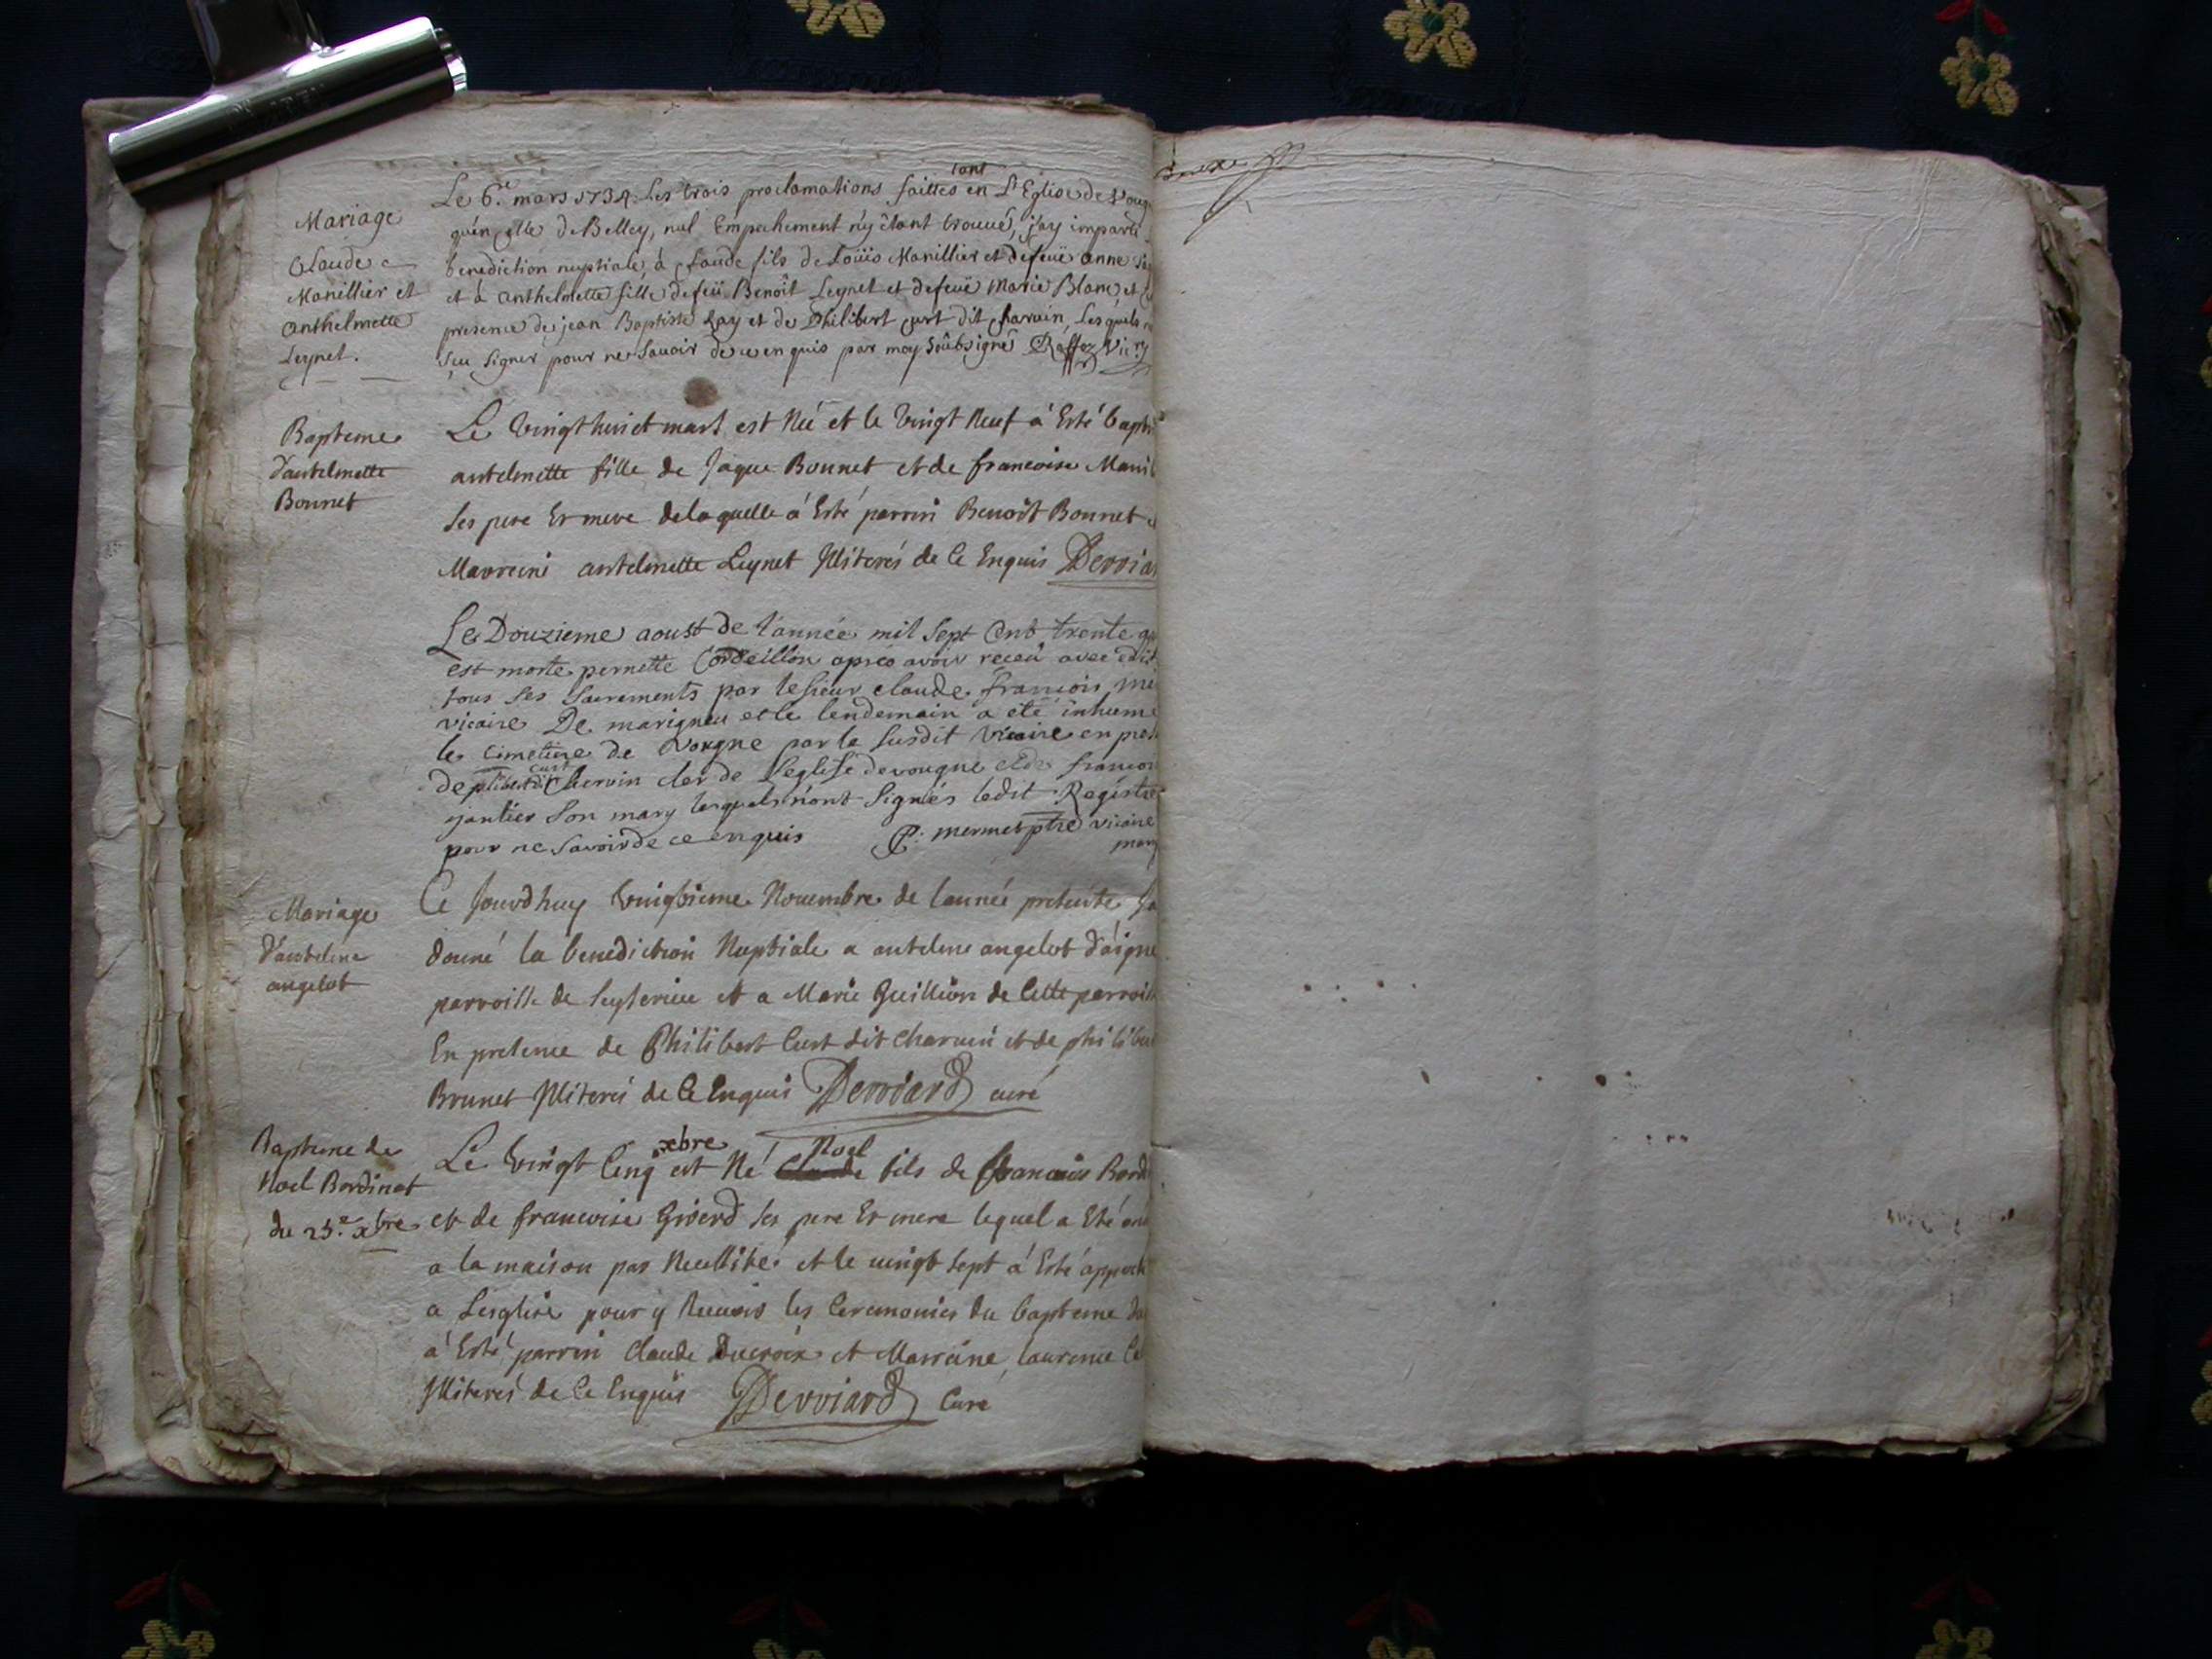 Mariage
Claude
Manillier et
anthelmette
Leynet.
Le 6.e mars 1734. Les trois proclamations faittes tant en L'Eglise de Voug
qu'en celle de Belley, nul Empechement n'y étant trouué, j'ay imparti
benediction nuptiale, à Claude fils de Loüis Manillier et defeüe anne
et à anthelmette fille defeü Benoît Leynet et defeüe Marie Blanc, et
presence de jean Baptiste Ray et de Philibert curt dit charuin, Lesquels
sçeu signer pour ne sauoir de ce enquis par moy soûbsigné Raffoz Vic.re
Bapteme
d'antelmette
Bonnet
Le Vingt huict mars est Né et le Vingt Neuf à Esté bapti
antelmette fille de Jaque Bonnet et de francoise Manil
ses pere Et mere delaquelle à Esté parrin Benoît Bonnet
Marreine antelmette Leynet Illiterés de Ce Enquis Derviar
Le Douzieme aoust de l'année mil sept Cent trente qu
est morte pernette Cordeillon apres avoir receu avec edif
tous ses sacrements par lesieur claude françois me
vicaire De marigneu et le lendemain a eté inhumé
le cimetiere de vongne par le susdit vicaire en pres
de philibert curt dit Chervin cler de l'eglise de vougne et de françoi
gantier son mary lesquels n'ont signés ledit Registre
pour ne savoir de ce enquis C: mermet ptre vicaire
marig
Mariage
d'antelme
angelot
Ce Jourdhuy Vingtieme Nouembre de lannée presente Ja
donné la benediction Nuptiale a antelme angelot d'aigne
parroisse de seyserieu et a Marie Guillion de Cette parroiss
En presence de Philibert Curt dit Charuin et de philiber
Brunet Illiterés de Ce Enquis Derviard curé
Bapteme de
Noel Bordinat
du 25.e xbre
Le Vingt Cinq xbre est Né Noel fils de francois Bord
et de francoise Girerd ses pere Et mere lequel a Esté ond
a la maison par Necessité et le vingt sept à Esté apporté
a Lesglise pour y Receuoir les Ceremonies du bapteme d
à Esté parrin Claude Ducroix et Marreine laurence
Illiterés de Ce Enquis Derviard Curé